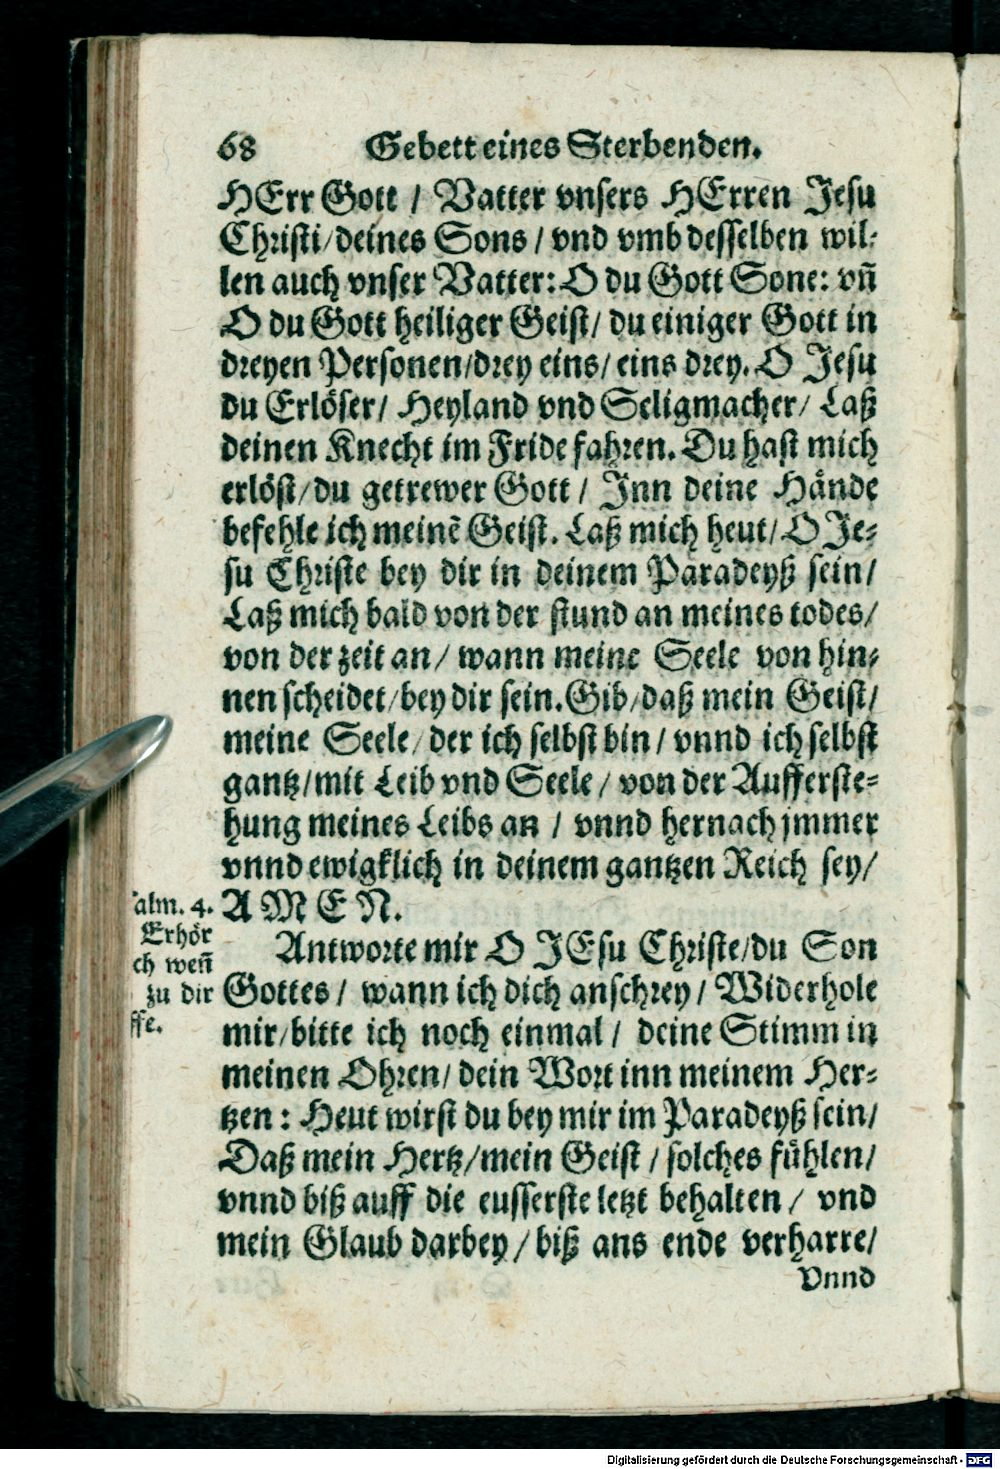 68 Gebett eines Sterbenden.
HErr Gott / Vatter vnsers HErren Jesu
Christi/deines Sons / vnd vmb desselben wil-
len auch vnser Vatter: O du Gott Sone: vñ
O du Gott heiliger Geist/ du einiger Gott in
dreyen Personen/drey eins/ eins drey. O Jesu
du Erlöser/ Heyland vnd Seligmacher/ Laß
deinen Knecht im Fride fahren. Du hast mich
erlöst/du getrewer Gott / Inn deine Hände
befehle ich meinẽ Geist. Laß mich heut/ O Je-
su Christe bey dir in deinem Paradeyß sein/
Laß mich bald von der stund an meines todes/
von der zeit an/ wann meine Seele von hin-
nen scheidet/bey dir sein. Gib/daß mein Geist/
meine Seele/der ich selbst bin/ vnnd ich selbst
gantz/mit Leib vnd Seele / von der Aufferste-
hung meines Leibs an / vnnd hernach jmmer
vnnd ewigklich in deinem gantzen Reich sey/
A M E N.
alm. 4.
Erhör
ch weñ
zu dir
ffe.
Antworte mir O JEsu Christe/du Son
Gottes/ wann ich dich anschrey/ Widerhole
mir/bitte ich noch einmal/ deine Stimm in
meinen Ohren/ dein Wort inn meinem Her-
tzen : Heut wirst du bey mir im Paradeyß sein/
Daß mein Hertz/mein Geist / solches fühlen/
vnnd biß auff die eusserste letzt behalten / vnd
mein Glaub darbey/ biß ans ende verharre/
Vnnd
Digitalisierung gefördert durch die Deutsche Forschungsgemeinschaft - DFG